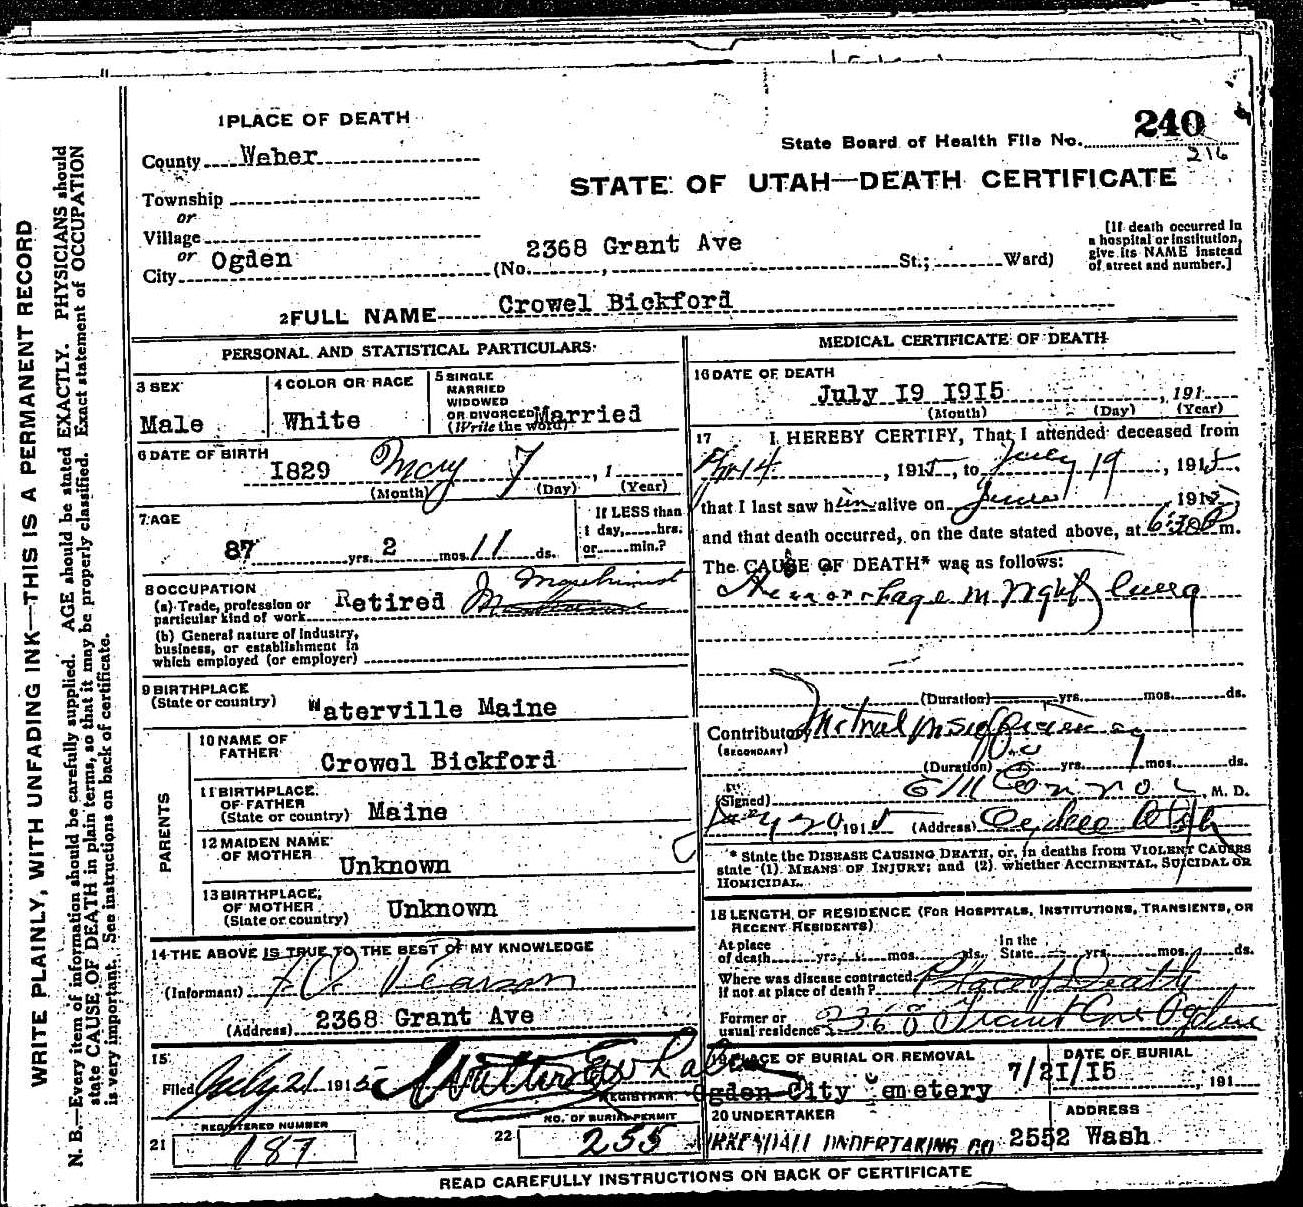 WRITE PLAINLY, WITH UNFADING INK—THIS IS A PERMANENT RECORD
N. B.—Every item of information should be carefully supplied. AGE should be stated EXACTLY. PHYSICIANS should
state CAUSE OF DEATH in plain terms, so that it may be properly classified. Exact statement of OCCUPATION
is very important. See instructions on back of certificate.
1 PLACE OF DEATH
State Board of Health File No. 240
216
County Weber
STATE OF UTAH—DEATH CERTIFICATE
Township
or
Village
or
City Ogden
(No. 2368 Grant Ave St.; Ward)
[If death occurred in
a hospital or institution,
give its NAME instead
of street and number.]
2 FULL NAME Crowel Bickford
PERSONAL AND STATISTICAL PARTICULARS
3 SEX
Male
4 COLOR OR RACE
White
5 SINGLE
MARRIED
WIDOWED
OR DIVORCED Married
(Write the word)
6 DATE OF BIRTH
I829 May 7, 1
(Month) (Day) (Year)
7 AGE
87 yrs. 2 mos. 11 ds.
If LESS than
1 day, hrs.
or min.?
8 OCCUPATION
(a) Trade, profession or
particular kind of work Retired Machinist
(b) General nature of industry,
business, or establishment in
which employed (or employer)
9 BIRTHPLACE
(State or country) Waterville Maine
PARENTS
10 NAME OF
FATHER Crowel Bickford
11 BIRTHPLACE
OF FATHER
(State or country) Maine
12 MAIDEN NAME
OF MOTHER Unknown
13 BIRTHPLACE
OF MOTHER
(State or country) Unknown
14 THE ABOVE IS TRUE TO THE BEST OF MY KNOWLEDGE
(Informant)
(Address) 2368 Grant Ave
15
Filed July 21 1915
REGISTRAR
REGISTERED NUMBER
21 187
NO. OF BURIAL PERMIT
22 255
MEDICAL CERTIFICATE OF DEATH
16 DATE OF DEATH
July I9 I9I5, 191
(Month) (Day) (Year)
17 I HEREBY CERTIFY, That I attended deceased from
14, 1915, to July 19, 1915,
that I last saw him alive on 1915
and that death occurred, on the date stated above, at 6:30 P m.
The CAUSE OF DEATH* was as follows:
Hemorrhage in right lung
(Duration) yrs. mos. ds.
Contributory Mitral Insufficiency
(SECONDARY)
(Duration) yrs. mos. ds.
(Signed) E M Connor, M. D.
20 1915 (Address) Ogden Utah
* State the DISEASE CAUSING DEATH, or, in deaths from VIOLENT CAUSES
state (1) MEANS OF INJURY; and (2) whether ACCIDENTAL, SUICIDAL OR
HOMICIDAL.
18 LENGTH OF RESIDENCE (FOR HOSPITALS, INSTITUTIONS, TRANSIENTS, OR
RECENT RESIDENTS)
At place
of death yrs. mos. ds.
In the
State yrs. mos. ds.
Where was disease contracted,
if not at place of death? Place of Death
Former or
usual residence 2368 Grant Ave Ogden
19 PLACE OF BURIAL OR REMOVAL
Ogden City Cemetery
DATE OF BURIAL
7/2I/I5, 191
20 UNDERTAKER
KIRKENDALL UNDERTAKING CO
ADDRESS
2552 Wash
READ CAREFULLY INSTRUCTIONS ON BACK OF CERTIFICATE